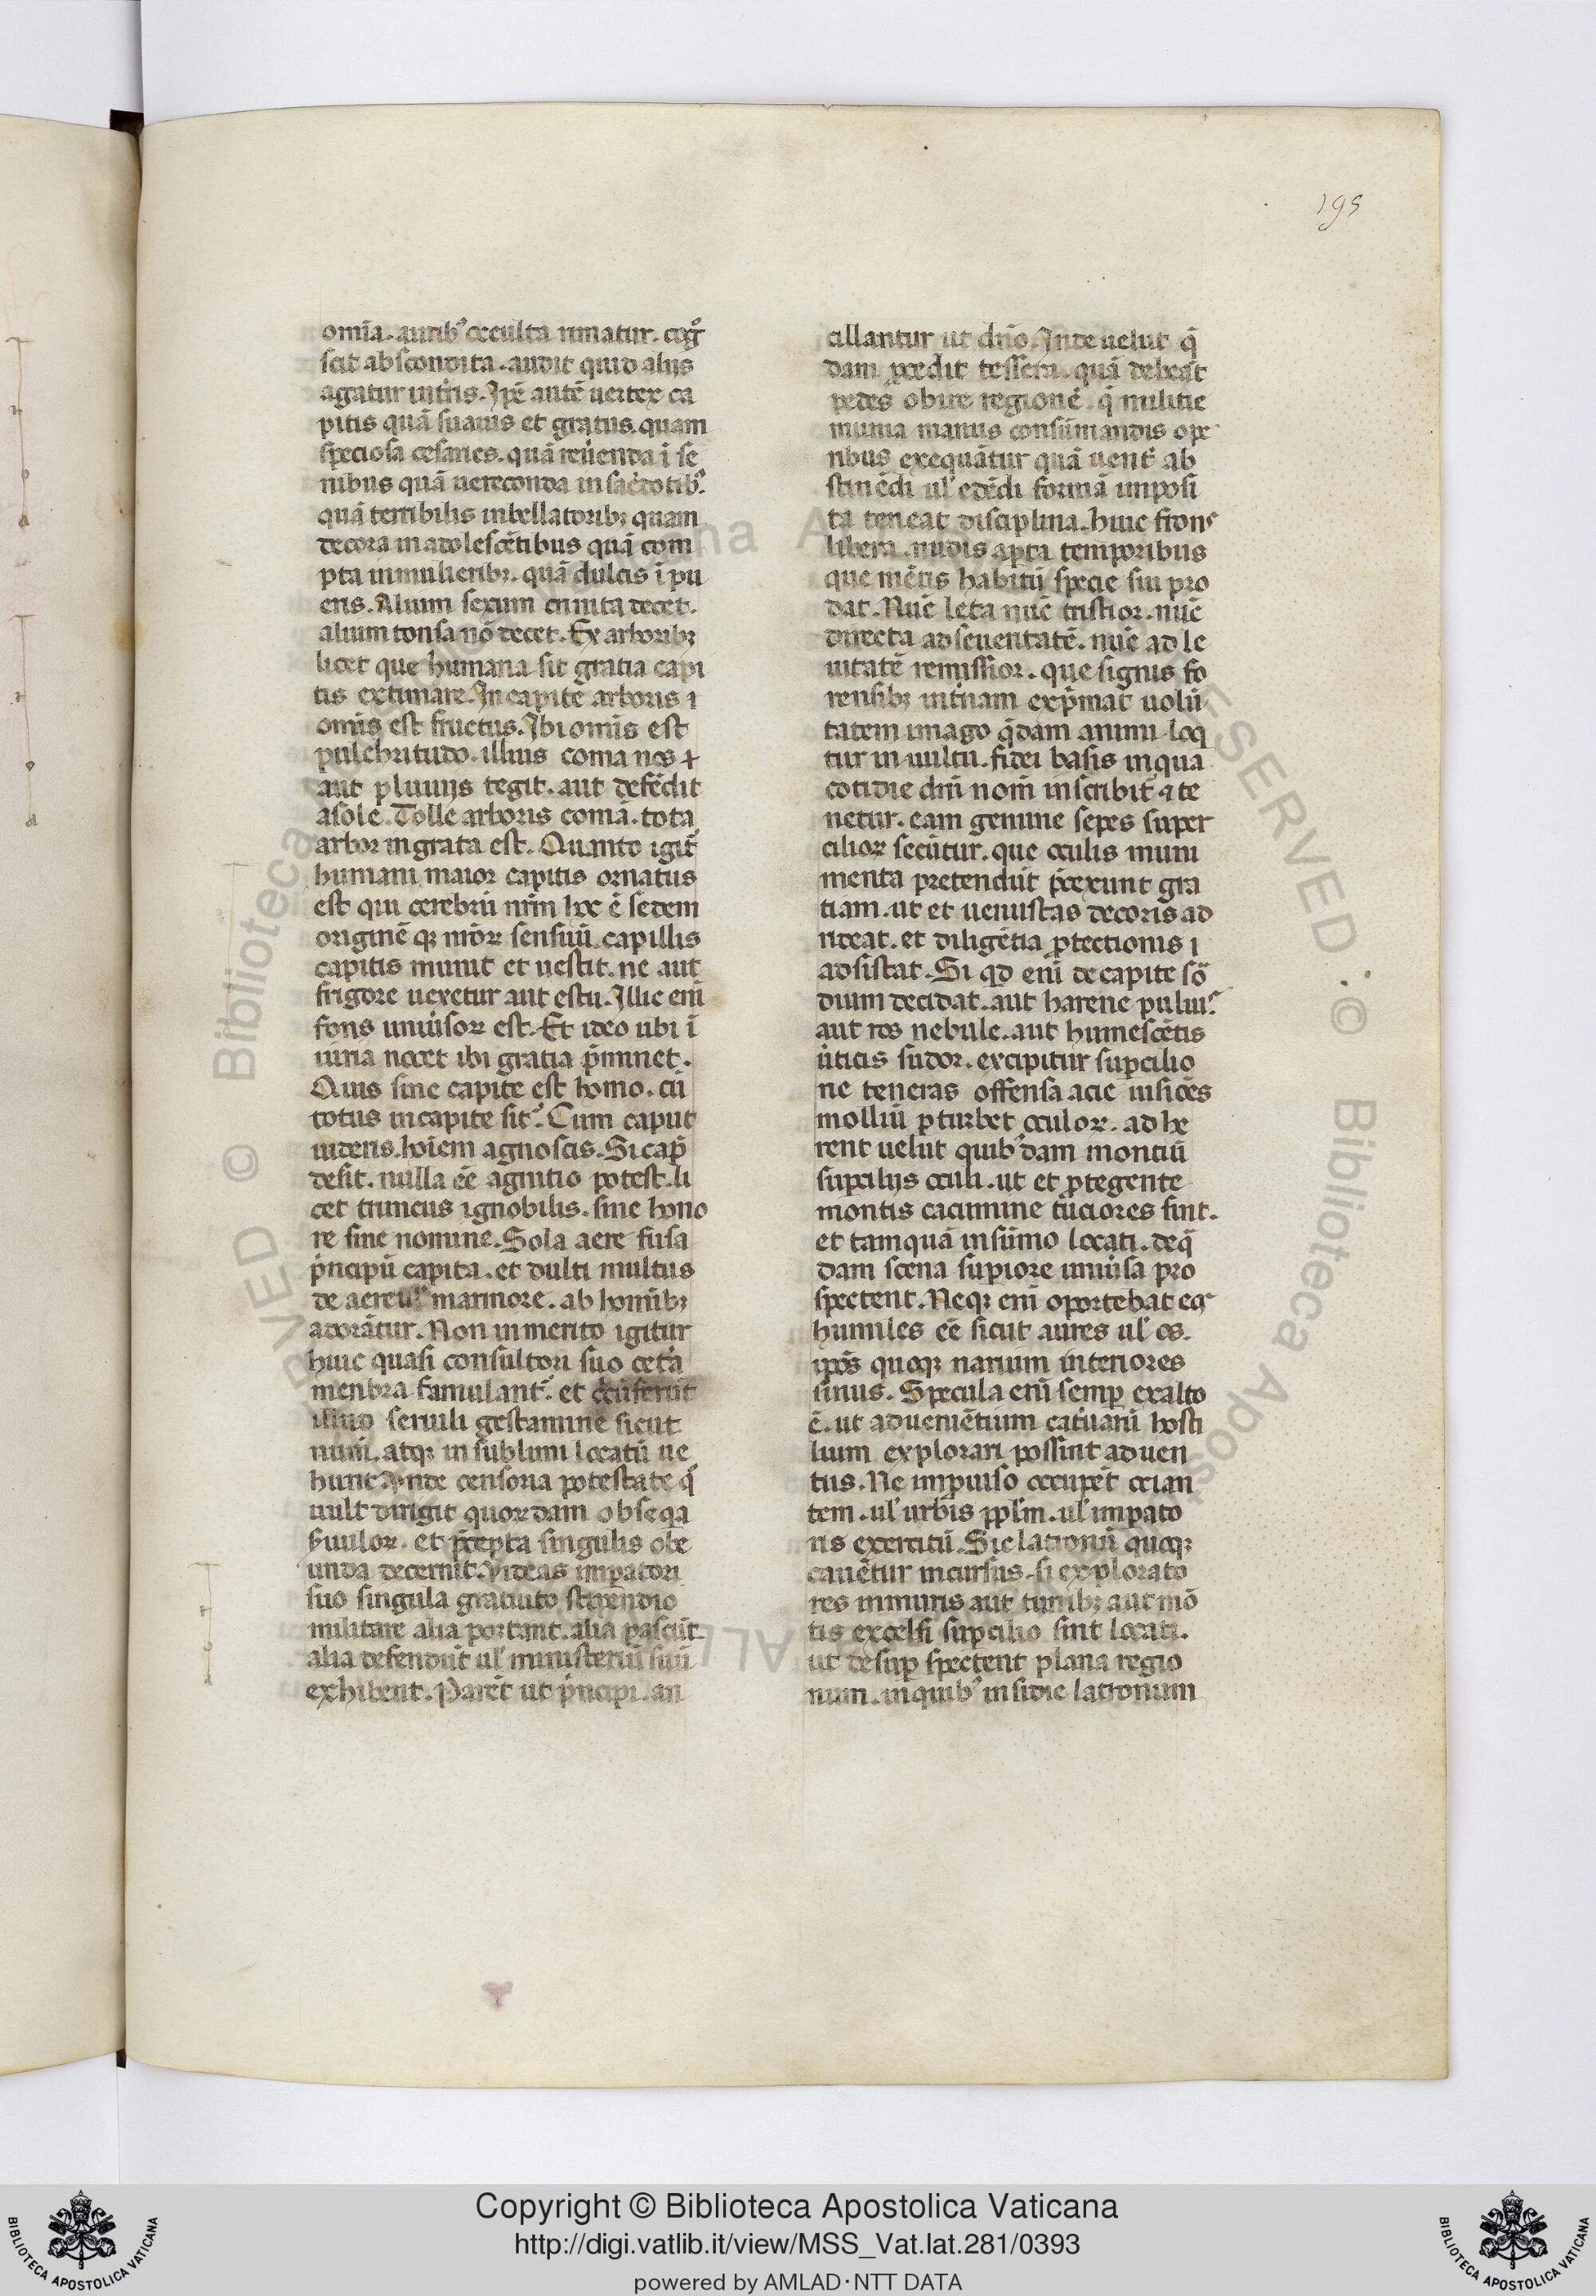 195
omīa. aurib᾽ occulta rimatur. cog͛
scit abscondita. audit quid aliis
agatur in t̾ris. Ip̄e autē uertex ca
pitis quā suauis et gratus. quam
speciosa cesaries. quā reũenda ī se
nibus quā uereconda in sac̾dotib᾽.
quā terribilis in bellatorib; quam
decora in adolescētibus quā com
pta in mulierib;. quā dulcis ī pu
eris. Alium sexum crinita decet.
alium tonsa nō decet. Ex arborib;
licet que humana sit gratia capi
tis extimare. In capite arboris ⁊
omīs est fructus. Ibi omīs est
pulchritudo. illius coma nos ⁊
aut pluuiis tegit. aut defēdit
a sole. Tolle arboris comā. tota
arbor ingrata est. Quanto igit᾽
humani maior capitis ornatus
est qui cerebrū nr̄m hoc ē sedem
originē q; nr̄oꝝ sensuū capillis
capitis munit et uestit. ne aut
frigore uexetur aut estu. Illic enī
fons uniũsoꝝ est. Et ideo ubi ī
iuria nocet ibi gratia p̄minet.
Quis sine capite est homo. cū
totus in capite sit᾽. Cum caput
uideris. hoīem agnoscis. Si cap᷒
desit. nulla eē agnitio potest. li
cet truncus ignobilis. sine hono
re sine nomine. Sola aere fusa
p̄ncipū capita. et ducti uultus
de aere ul᾽ marmore. ab homīb;
adorātur. Non inmerito igitur
huic quasi consultori suo cet̾a
menbra famulant᷒. et
illud seruili gestamine sicut
num. atq; in sublimi locatū ue
hunt. Inde censoria potestate q°
uult dirigit quorūdam obseq̄a
s̾uuloꝝ. et p̄cepta singulis obe
unda decernit. Videas imꝑatori
suo singula gratuito stipendio
militare alia portant. alia pascūt.
alia defendūt ul᾽ ministeriū suū
exhibent. Parēt ut p̄ncipi. an
cillantur ut dn̄o. Inde uelut q̄
dam ꝓcedit tessera. quā debeāt
pedes obire regionē. q̄ militie
munia manus consūmandis ope
ribus exequātur quā uent̾ ab
stinēdi ul᾽ edēdi formā imposi
ta teneat disciplina. huic frons
libera. nudis aꝑta temporibus
que mētis habitū specie sui pro
dat. Nūc leta nūc tristior. nūc
directa ad seueritatē. nūc ad le
uitatē remissior. que signis fo
rensib; int̾nam exp̄mat uolū
tatem imago q̄dam animi loq̄
tur in uultu. fidei basis in qua
cotidie dn̄i nom̄ inscribit᷒ ⁊ te
netur. eam gemine sepes super
cilioꝝ secūtur. que oculis muni
menta pretendūt p̄texunt gra
tiam. ut et uenustas decoris ad
rideat. et diligētia ꝓtectionis ⁊
adsistat. Si qd enī de capite sor̄
dium decidat. aut harene puluis
aut ros nebule. aut humescētis
ũticis sudor. excipitur suꝑcilio
ne teneras offensa acie uisiōes
molliū ꝑturbet oculoꝝ. ad he
rent uelut quib᾽dam montiū
suꝑciliis oculi. ut et ꝓtegente
montis cacumine tuciores sint.
et tamquā in sūmo locati. de q̄
dam scena suꝑiore uniũsa pro
spectent. Neq; enī oportebat eos
humiles eē sicut aures ul᾽ os.
ip̄os quoq; narium interiores
sinus. Specula enī semꝑ ex alto
ē. ut aduenētium cat̾uarū hosti
lium explorari possint aduen
tus. Ne imꝓuiso occupēt ocian
tem. ul᾽ urbis pp̄lm. ul᾽ imꝑato
ris exercitū. Sic latronū quoq;
cauētur incursus. si explorato
res in muris aut turrib; aut mō
tis excelsi suꝑcilio sint locati.
ut desuꝑ spectent plana regio
num. in quib᾽ insidie latronum
Copyright © Biblioteca Apostolica Vaticana
http://digi.vatlib.it/view/MSS_Vat.lat.281/0393
powered by AMLAD·NTT DATA
BIBLIOTECA APOSTOLICA VATICANA
BIBLIOTECA APOSTOLICA VATICANA